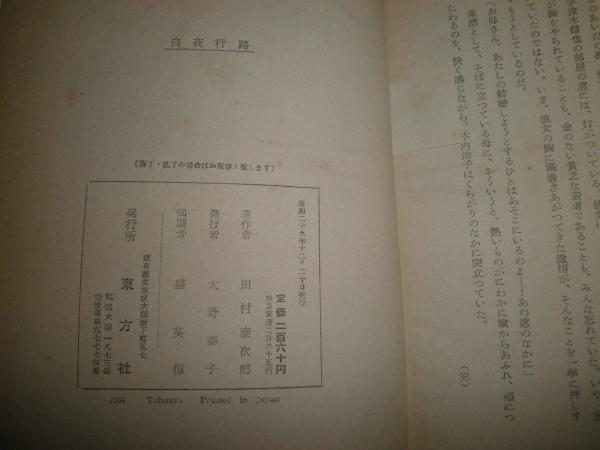 このあいだの夜
宇津木信也の部屋の窓には、灯がついている。
が胸をやられていることも、金のない貧乏な若者であることも、みんな忘れていた。いや、
ていたのではない。いま、彼女の胸に渦巻きあがってきた激情が、そんなことを一挙に押しす
てもうとしているのだ。
「お母さん、あたしの結婚しようとするひとはあそこにいるのよ――あの窓のなかに」
呆然として、そばに立っている母に、そういうと、熱いものがにわかに喉からあふれ、頬につ
たわるのを、快く感じながら、木内治子はくらがりのなかに突立っていた。
(完)
白夜行路
(落丁・乱丁の場合はお取替え致します)
昭和二十九年十二月二十日発行
定価二百六十円
地方定価二百六十五円
著作者 田村泰次郎
発行者 大野泰子
印刷者 盛英信
東京都文京区大塚坂下町五七
発行所 東方社
電話大塚一八七三番
振替東京五七七七四番
1954 Tohosya Printed in Japan